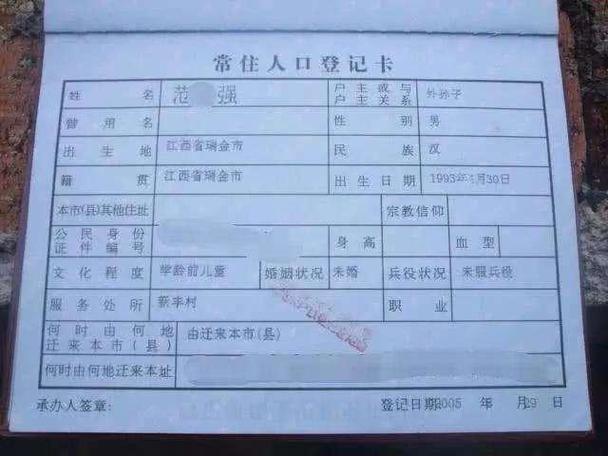 常住人口登记卡
姓名 范 强 户主或与户主关系 外孙子
曾用名 性别 男
出生地 江西省瑞金市 民族 汉
籍贯 江西省瑞金市 出生日期 1993年 月30日
本市(县)其他住址 宗教信仰
公民身份证件编号 身高 血型
文化程度 学龄前儿童 婚姻状况 未婚 兵役状况 未服兵役
服务处所 新李村 职业
何时由何地迁来本市(县) 由迁来本市(县)
何时由何地迁来本址
承办人签章: 登记日期:2005 年 月29 日